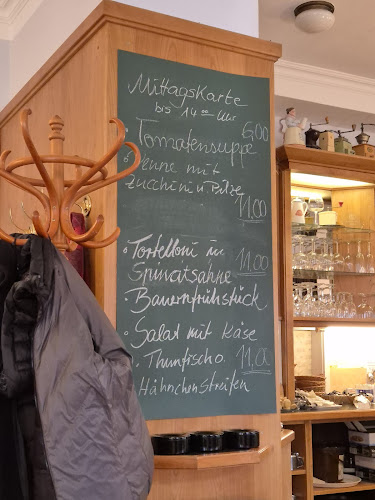 Mittagskarte
bis 14 00 Uhr
• Tomatensuppe 6,00
• Penne mit
Zucchini u. Pilze
11,00
• Tortelloni in
Spinatsahne 11,00
• Bauernfrühstück
• Salat mit Käse
• Thunfisch o. 11,00
Hähnchenstreifen